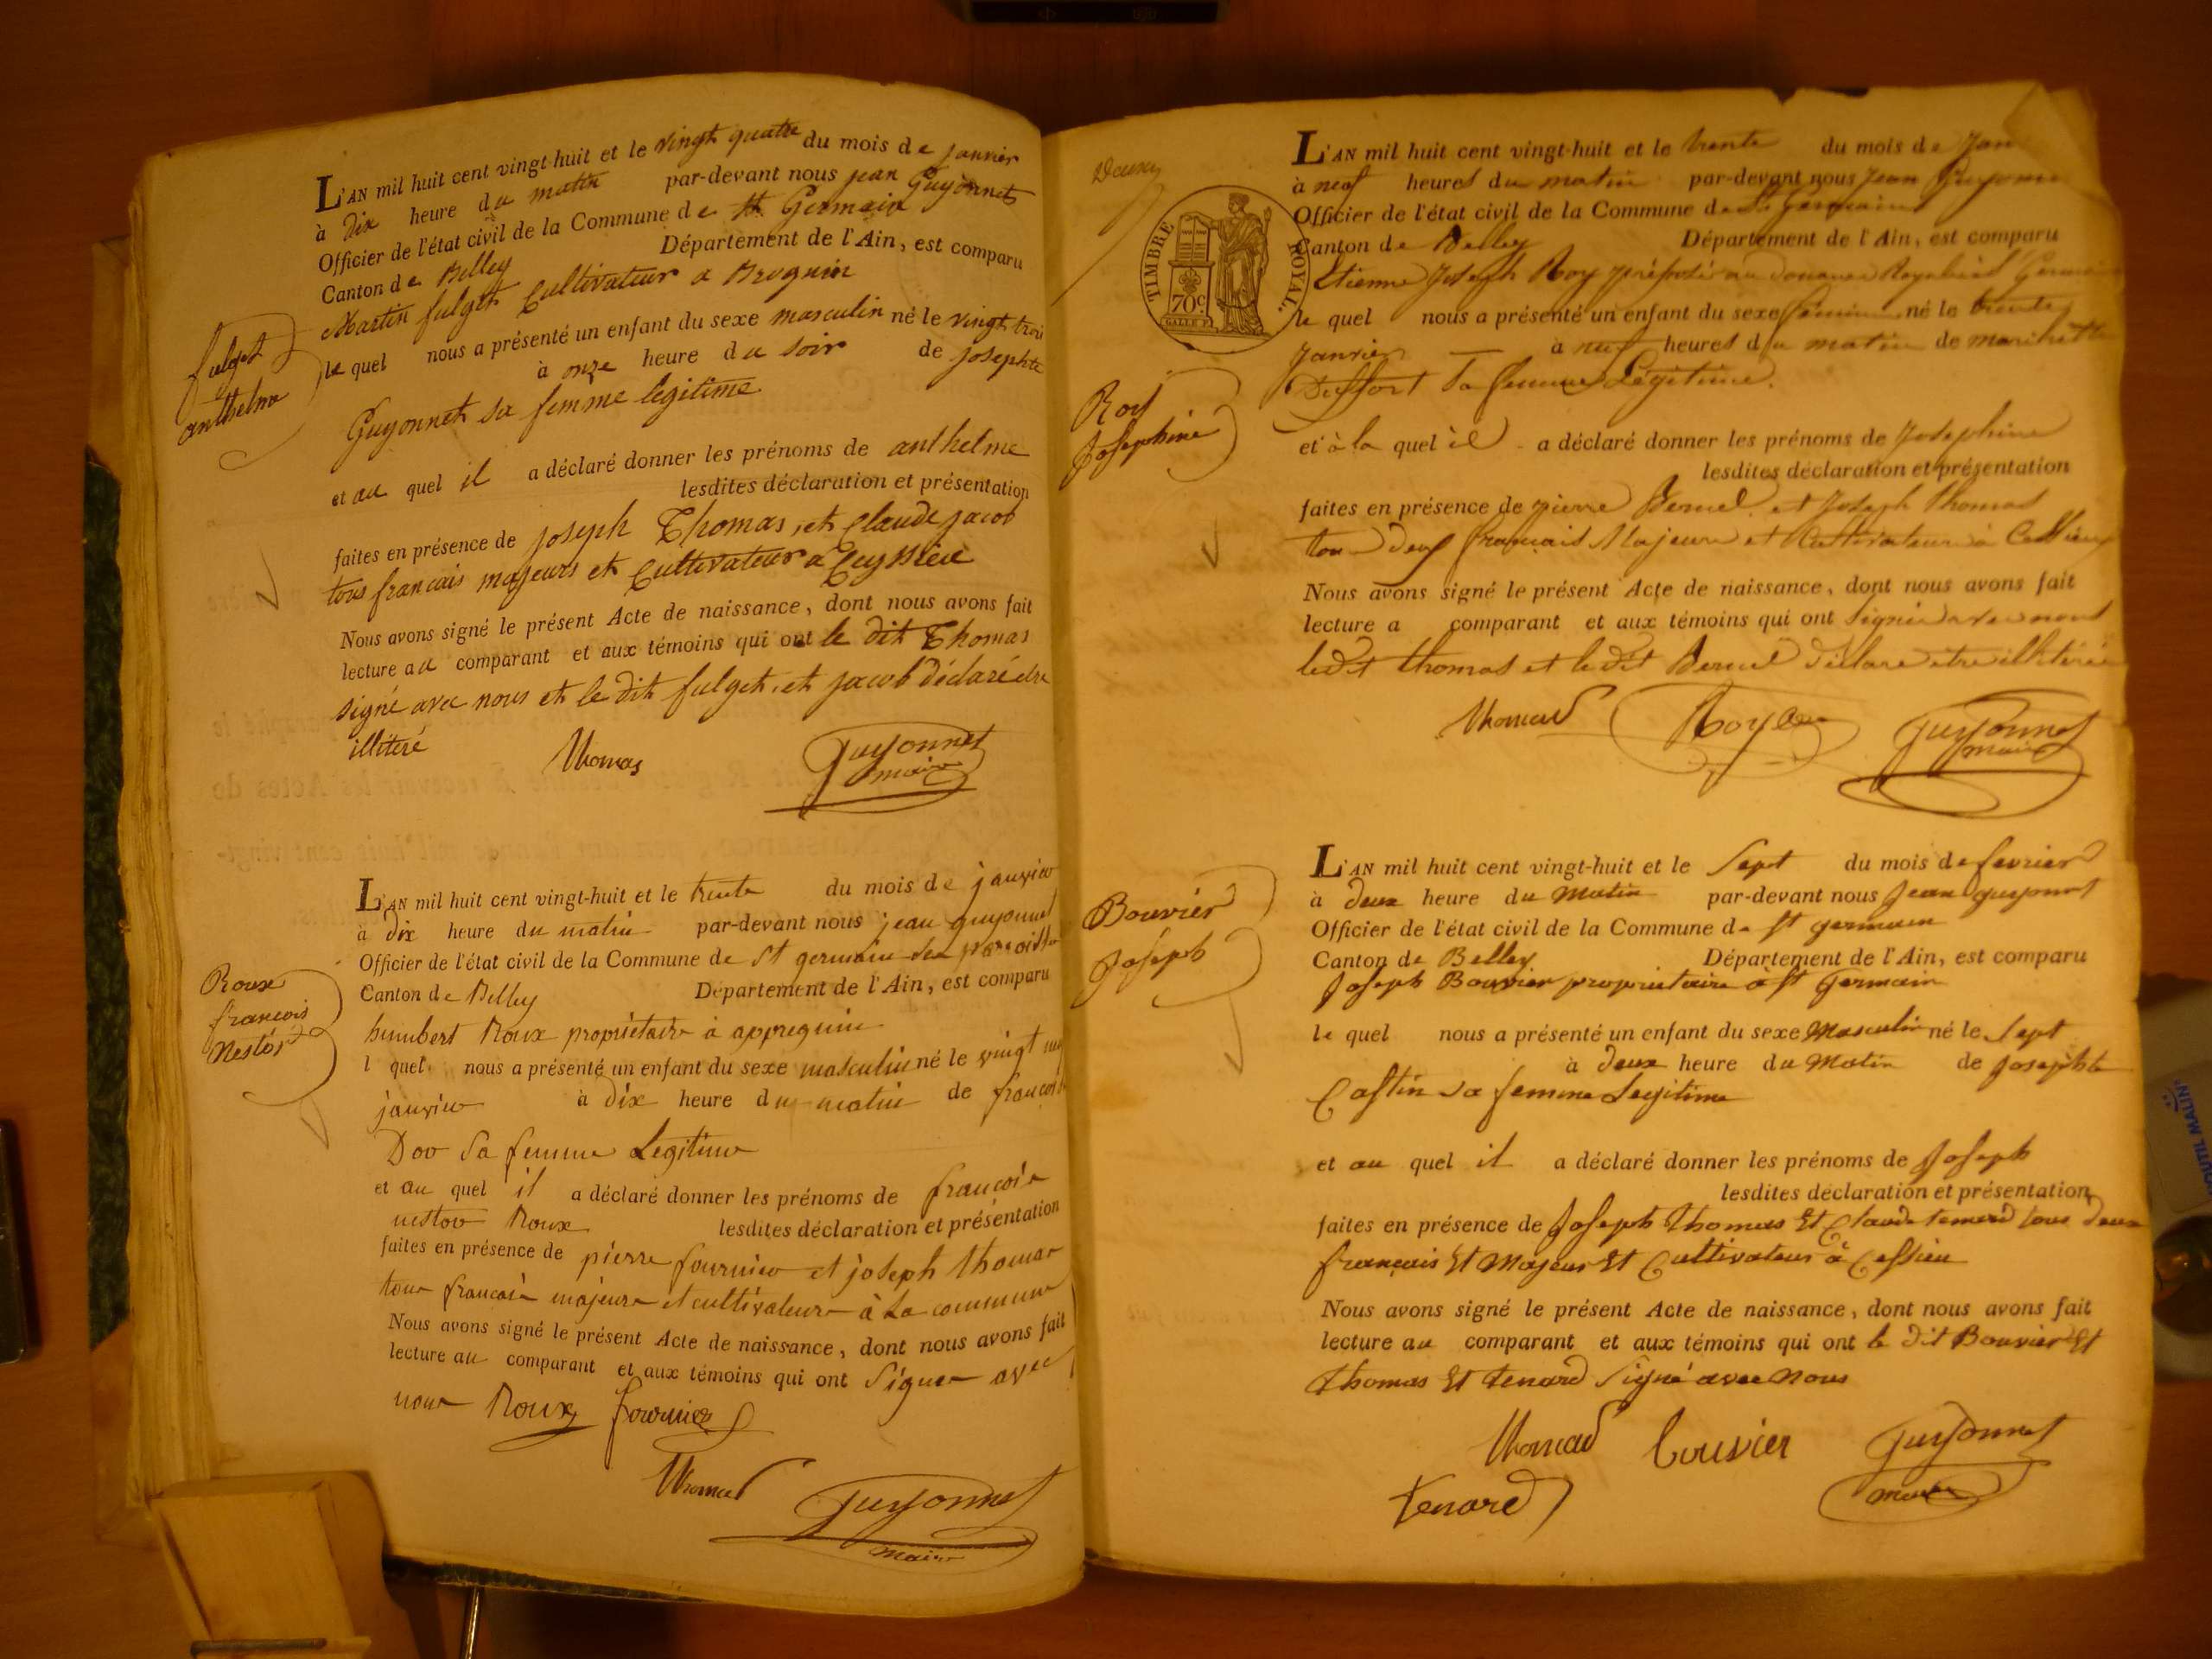 L'AN mil huit cent vingt-huit et le vingt quatre du mois de janvier
à dix heure du matin par-devant nous jean Guyonnet
Officier de l'état civil de la Commune de St Germain
Canton de Belley Département de l'Ain, est comparu
Martin fulget Cultivateur a Broguin
le quel nous a présenté un enfant du sexe masculin né le vingt trois
à onze heure du soir de josephte
Guyonnet sa femme legitime
et au quel il a déclaré donner les prénoms de anthelme
lesdites déclaration et présentation
faites en présence de joseph Thomas, et Claude jacob
tous francais majeurs et Cultivateur a
Nous avons signé le présent Acte de naissance, dont nous avons fait
lecture au comparant et aux témoins qui ont le dit Thomas
signé avec nous et le dit fulget, et jacob déclaré être
illiteré
Thomas Guyonnet
maire
fulget
anthelme
L'AN mil huit cent vingt-huit et le trente du mois de janvier
à dix heure du matin par-devant nous jean guyonnet
Officier de l'état civil de la Commune de St germain les paroisse
Canton de Belley Département de l'Ain, est comparu
humbert Roux propriétaire à appreguin
l quel nous a présenté un enfant du sexe masculin né le vingt
janvier à dix heure du matin de francoise
sa femme Legitime
et au quel il a déclaré donner les prénoms de francois
nestor Roux lesdites déclaration et présentation
faites en présence de pierre fournier et joseph thomas
tous francais majeurs et cultivateurs à la commune
Nous avons signé le présent Acte de naissance, dont nous avons fait
lecture au comparant et aux témoins qui ont signer avec
nous Roux fournier
Thomas
Guyonnet
maire
Roux
francois
Nestor
TIMBRE ROYAL.
70c
L'AN mil huit cent vingt-huit et le trente du mois de Jan
à neuf heures du matin par-devant nous Jean Guyonne
Officier de l'état civil de la Commune de St Germain
Canton de Belley Département de l'Ain, est comparu
Etienne Joseph Roy préposé au Douanes Royales à St Germain
le quel nous a présenté un enfant du sexe féminin né le trente
Janvier à neuf heures du matin de
sa femme Légitime.
et à la quel il a déclaré donner les prénoms de Josephine
lesdites déclaration et présentation
faites en présence de pierre et Joseph Thomas
tou deux français Majeurs et Cultivateurs à Cessieux
Nous avons signé le présent Acte de naissance, dont nous avons fait
lecture a comparant et aux témoins qui ont signé avec nous
ledit thomas et le dit déclaré être illitéré
Thomas Roy Guyonnet
maire
Roy
Josephine
L'AN mil huit cent vingt-huit et le Sept du mois de fevrier
à deux heure du Matin par-devant nous Jean guyonnet
Officier de l'état civil de la Commune de St germain
Canton de Belley Département de l'Ain, est comparu
Joseph Bouvier propriétaire à St Germain
le quel nous a présenté un enfant du sexe Masculin né le Sept
à deux heure du Matin de Josephte
Castin sa femme Legitime
et au quel il a déclaré donner les prénoms de Joseph
lesdites déclaration et présentation
faites en présence de Joseph Thomas Et Claude tenard tous deux
français Et Majeur Et Cultivateur à Cessieu
Nous avons signé le présent Acte de naissance, dont nous avons fait
lecture au comparant et aux témoins qui ont le dit Bouvier Et
Thomas Et tenard Signé avec Nous
Thomas bouvier Guyonnet
tenard maire
Bouvier
Joseph